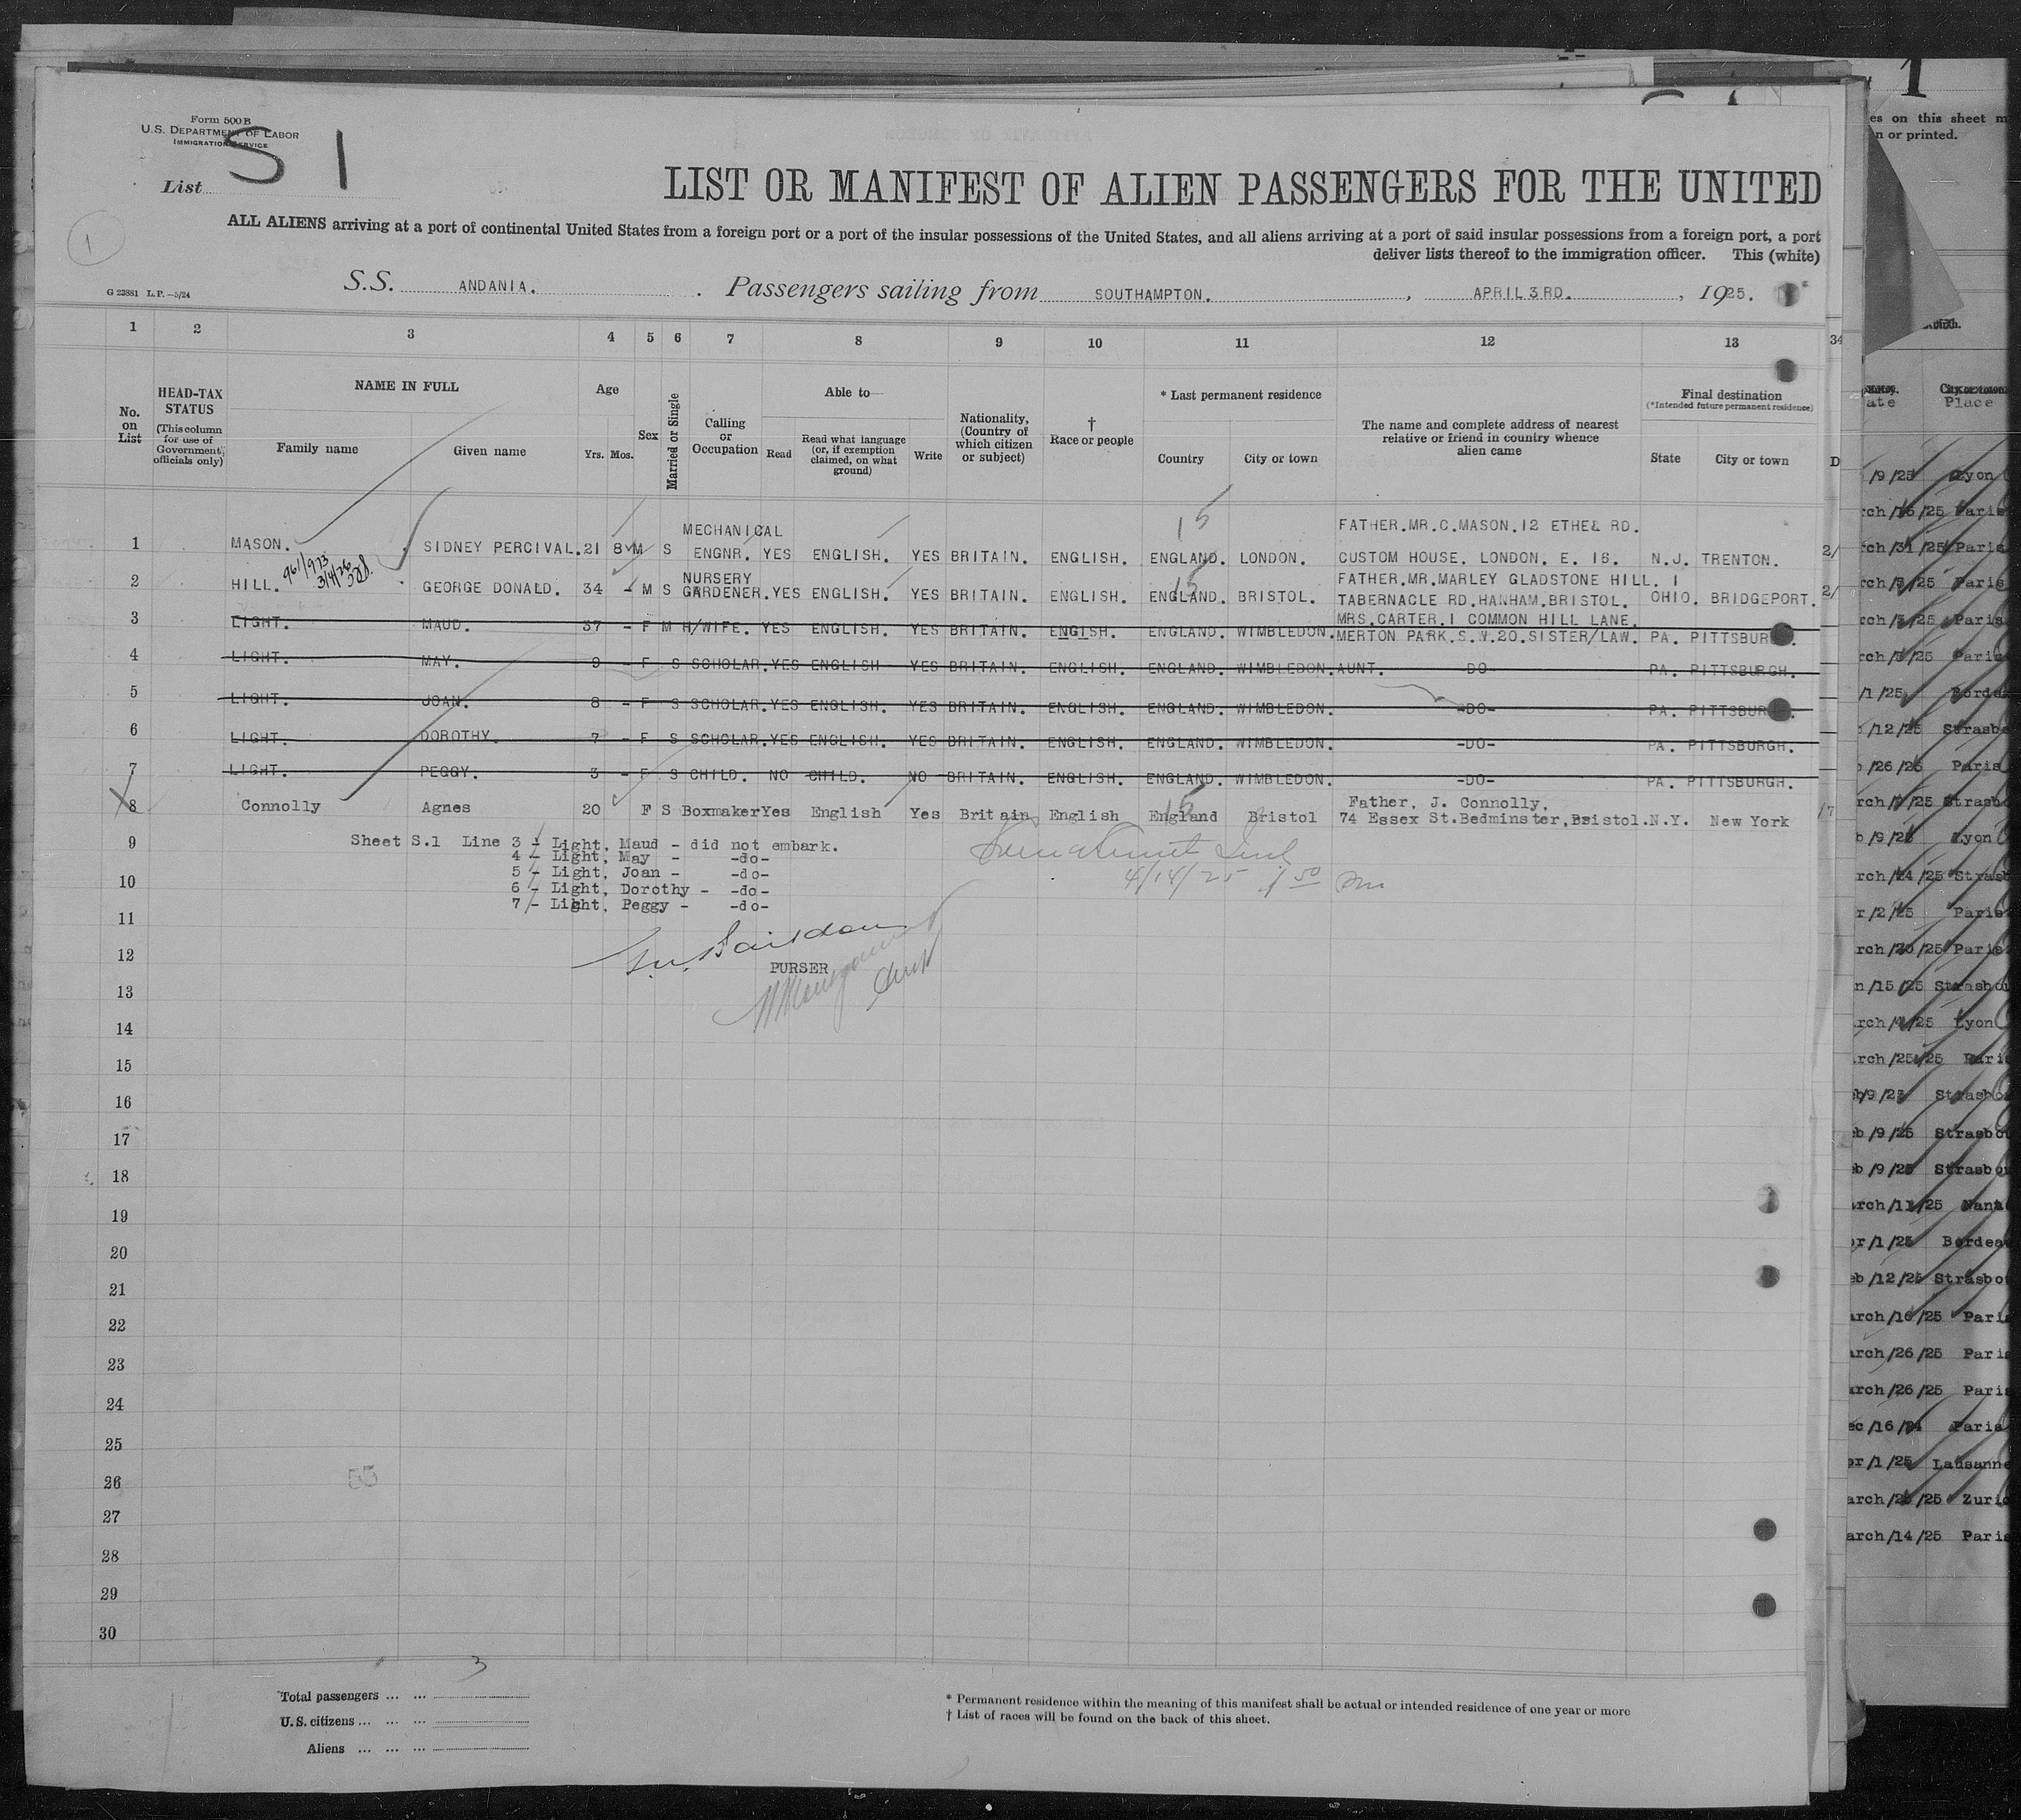 Form 500 B
U.S. DEPARTMENT OF LABOR
IMMIGRATION SERVICE
List S 1
1
LIST OR MANIFEST OF ALIEN PASSENGERS FOR THE UNITED
ALL ALIENS arriving at a port of continental United States from a foreign port or a port of the insular possessions of the United States, and all aliens arriving at a port of said insular possessions from a foreign port, a port
deliver lists thereof to the immigration officer. This (white)
G 23881 L.P.—5/24
S.S. ANDANIA. Passengers sailing from SOUTHAMPTON. , APRIL 3RD. , 1925.
1 2 3 4 5 6 7 8 9 10 11 12 13 34
No. on List
HEAD-TAX STATUS
(This column for use of Government officials only)
NAME IN FULL
Family name Given name
Age
Yrs. Mos.
Sex
Married or Single
Calling or Occupation
Able to—
Read
Read what language (or, if exemption claimed, on what ground)
Write
Nationality, (Country of which citizen or subject)
† Race or people
* Last permanent residence
Country City or town
The name and complete address of nearest relative or friend in country whence alien came
Final destination
(*Intended future permanent residence)
State City or town
D
15
MECHANICAL FATHER.MR.C.MASON.12 ETHEL RD.
1 MASON. SIDNEY PERCIVAL. 21 8 M S ENGNR. YES ENGLISH. YES BRITAIN. ENGLISH. ENGLAND. LONDON. CUSTOM HOUSE. LONDON. E. 16. N.J. TRENTON. 2/
961/973
3/4/26
15
NURSERY FATHER.MR.MARLEY GLADSTONE HILL. 1
2 HILL. GEORGE DONALD. 34 - M S GARDENER. YES ENGLISH. YES BRITAIN. ENGLISH. ENGLAND. BRISTOL. TABERNACLE RD.HANHAM.BRISTOL. OHIO. BRIDGEPORT. 2/
MRS.CARTER.1 COMMON HILL LANE.
3 LIGHT. MAUD. 37 - F M H/WIFE. YES ENGLISH. YES BRITAIN. ENGISH. ENGLAND. WIMBLEDON. MERTON PARK.S.W.20.SISTER/LAW. PA. PITTSBUR .
4 LIGHT. MAY. 9 - F S SCHOLAR. YES ENGLISH YES BRITAIN. ENGLISH. ENGLAND. WIMBLEDON. AUNT. -DO- PA. PITTSBURGH.
5 LIGHT. JOAN. 8 - F S SCHOLAR. YES ENGLISH. YES BRITAIN. ENGLISH. ENGLAND. WIMBLEDON. -DO- PA. PITTSBUR .
6 LIGHT. DOROTHY. 7 - F S SCHOLAR. YES ENGLISH. YES BRITAIN. ENGLISH. ENGLAND. WIMBLEDON. -DO- PA. PITTSBURGH.
7 LIGHT. PEGGY. 3 - F S CHILD. NO CHILD. NO BRITAIN. ENGLISH. ENGLAND. WIMBLEDON. -DO- PA. PITTSBURGH.
15
Father, J. Connolly,
8 Connolly Agnes 20 F S Boxmaker Yes English Yes Britain English England Bristol 74 Essex St.Bedminster,Bristol. N.Y. New York
9 Sheet S.1 Line 3 - Light, Maud - did not embark.
4 - Light, May - -do-
5 - Light, Joan - -do-
10 6 - Light, Dorothy - -do-
7 - Light, Peggy - -do-
4/14/25
11
12 PURSER
13
14
15
16
17
18
19
20
21
22
23
24
25
26 55
27
28
29
30
3
Total passengers ... ...
U.S. citizens ... ... ...
Aliens ... ... ...
* Permanent residence within the meaning of this manifest shall be actual or intended residence of one year or more
† List of races will be found on the back of this sheet.
1
es on this sheet m
n or printed.
ate Place
/9/25 Lyon
rch/16/25 Paris
rch/31/25 Paris
rch/5/25 Paris
rch/3/25 Paris
rch/5/25 Paris
/1/25 Bordea
/12/25 Strasbo
/26/25 Paris
rch/9/25 Strasbo
b/9/25 Lyon
rch/24/25 Strasb
r/2/25 Paris
rch/20/25 Paris
n/15/25 Strasbou
rch/4/25 Lyon
rch/25/25 Paris
b/9/25 Strasbo
eb/9/25 Strasbo
eb/9/25 Strasbou
arch/11/25 Nant
pr/1/25 Bordea
eb/12/25 Strasbou
arch/16/25 Paris
arch/26/25 Paris
arch/26/25 Paris
ec/16/24 Paris
pr/1/25 Lausanne
arch/25/25 Zuric
arch/14/25 Paris